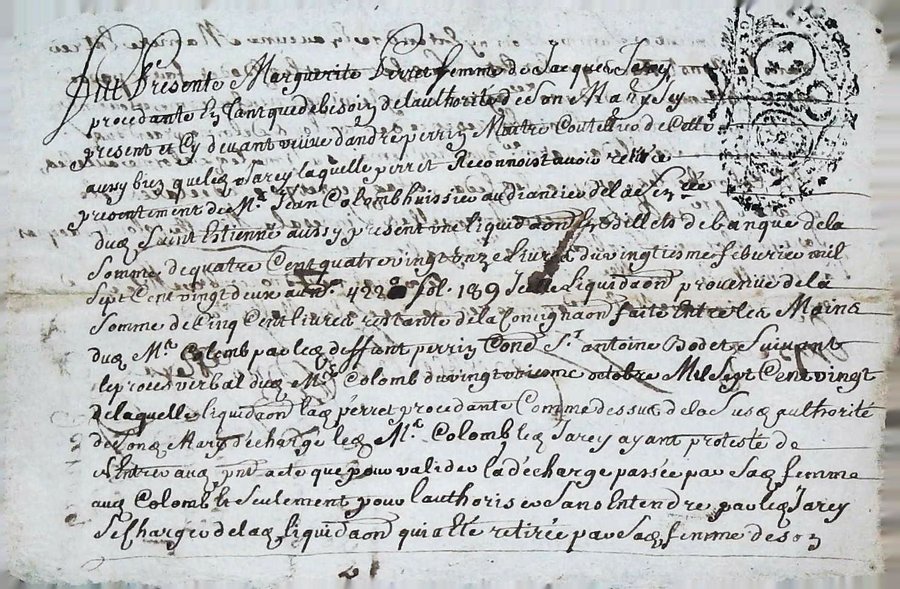 fut Présente Marguerite Perret femme de Jacques Jarey
procedante En Tant que de besoin de lauthorité de Son Mary Jy
present et Cy devant veuve dandré perrin Maitre Coutellier de Cette
aussy bien que led Jarey laquelle perret Reconnoist avoir retiré
presentement de Mr. Jean Colomb huissier audiancier de la
dud Saint Estienne aussy present une liquidaon En billets de banque de la
Somme de quatre Cent quatre vingt onze livres du vingtiesme feberier mil
Sept Cent vingt deux au no. 422 fol. 189 liquidaon provenue de la
Somme de Cinq Cent livres restante de la Consignaon faite Entre les Mains
dud Mr. Colomb par led deffunt perrin Cond Sr. antoine Bodet Suivant
le proces verbal dud Mr. Colomb du vingt octobre Mil Sept Cent vingt
de laquelle liquidaon lad perret procedante Comme dessus de la Susd authorité
de Sond Mary décharge led Mr. Colomb led Jarey ayant protesté de
nEntrer aud pnt acte que pour valider la décharge passée par Sad femme
aud Colomb & Seulement pour lauthoriser Sans Entendre par led Jarey
Se Charger de lad liquidaon qui a été retirée par Sad femme de Son